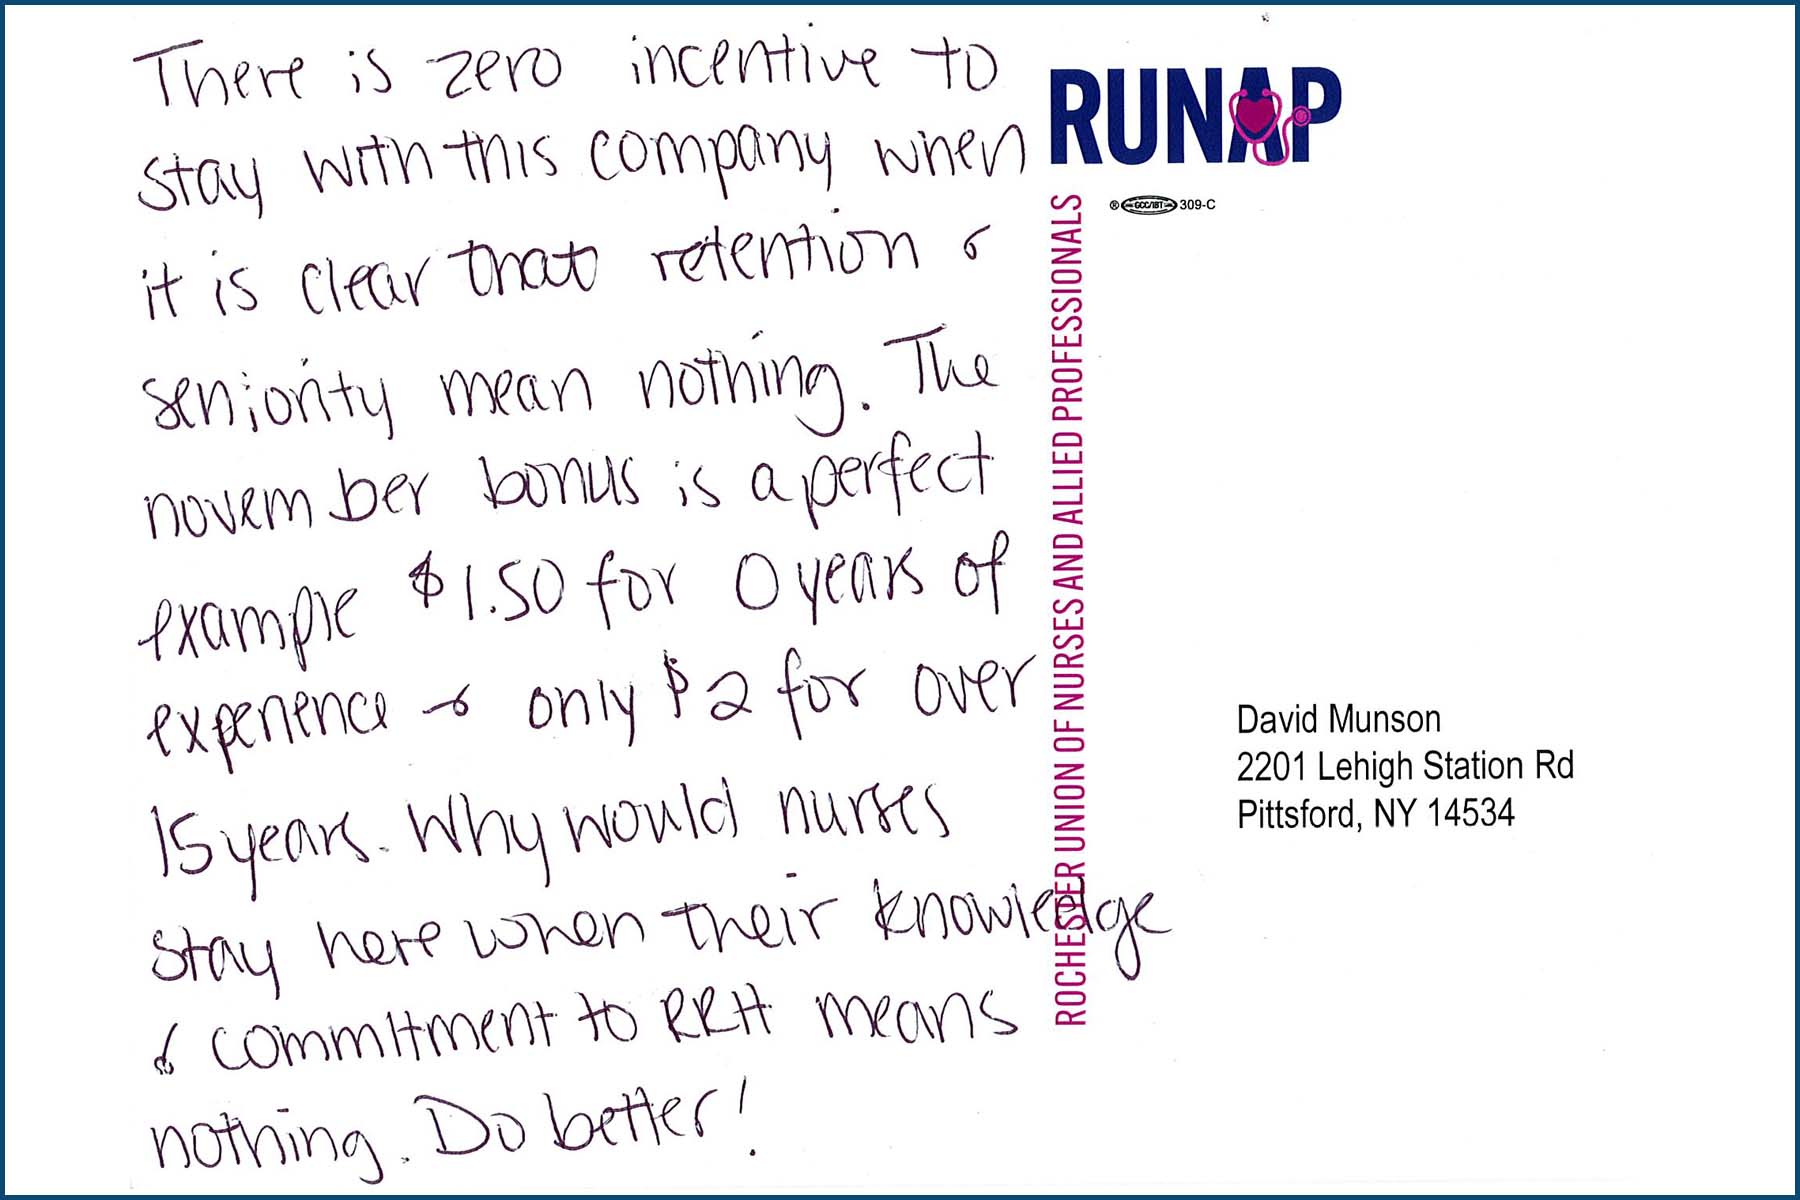 There is zero incentive to
stay with this company when
it is clear that retention &
seniority mean nothing. The
november bonus is a perfect
example $1.50 for 0 years of
experience & only $2 for over
15 years. Why would nurses
stay here when their knowledge
& commitment to RRH means
nothing. Do better!
RUNAP
® GCC/IBT 309-C
ROCHESTER UNION OF NURSES AND ALLIED PROFESSIONALS
David Munson
2201 Lehigh Station Rd
Pittsford, NY 14534